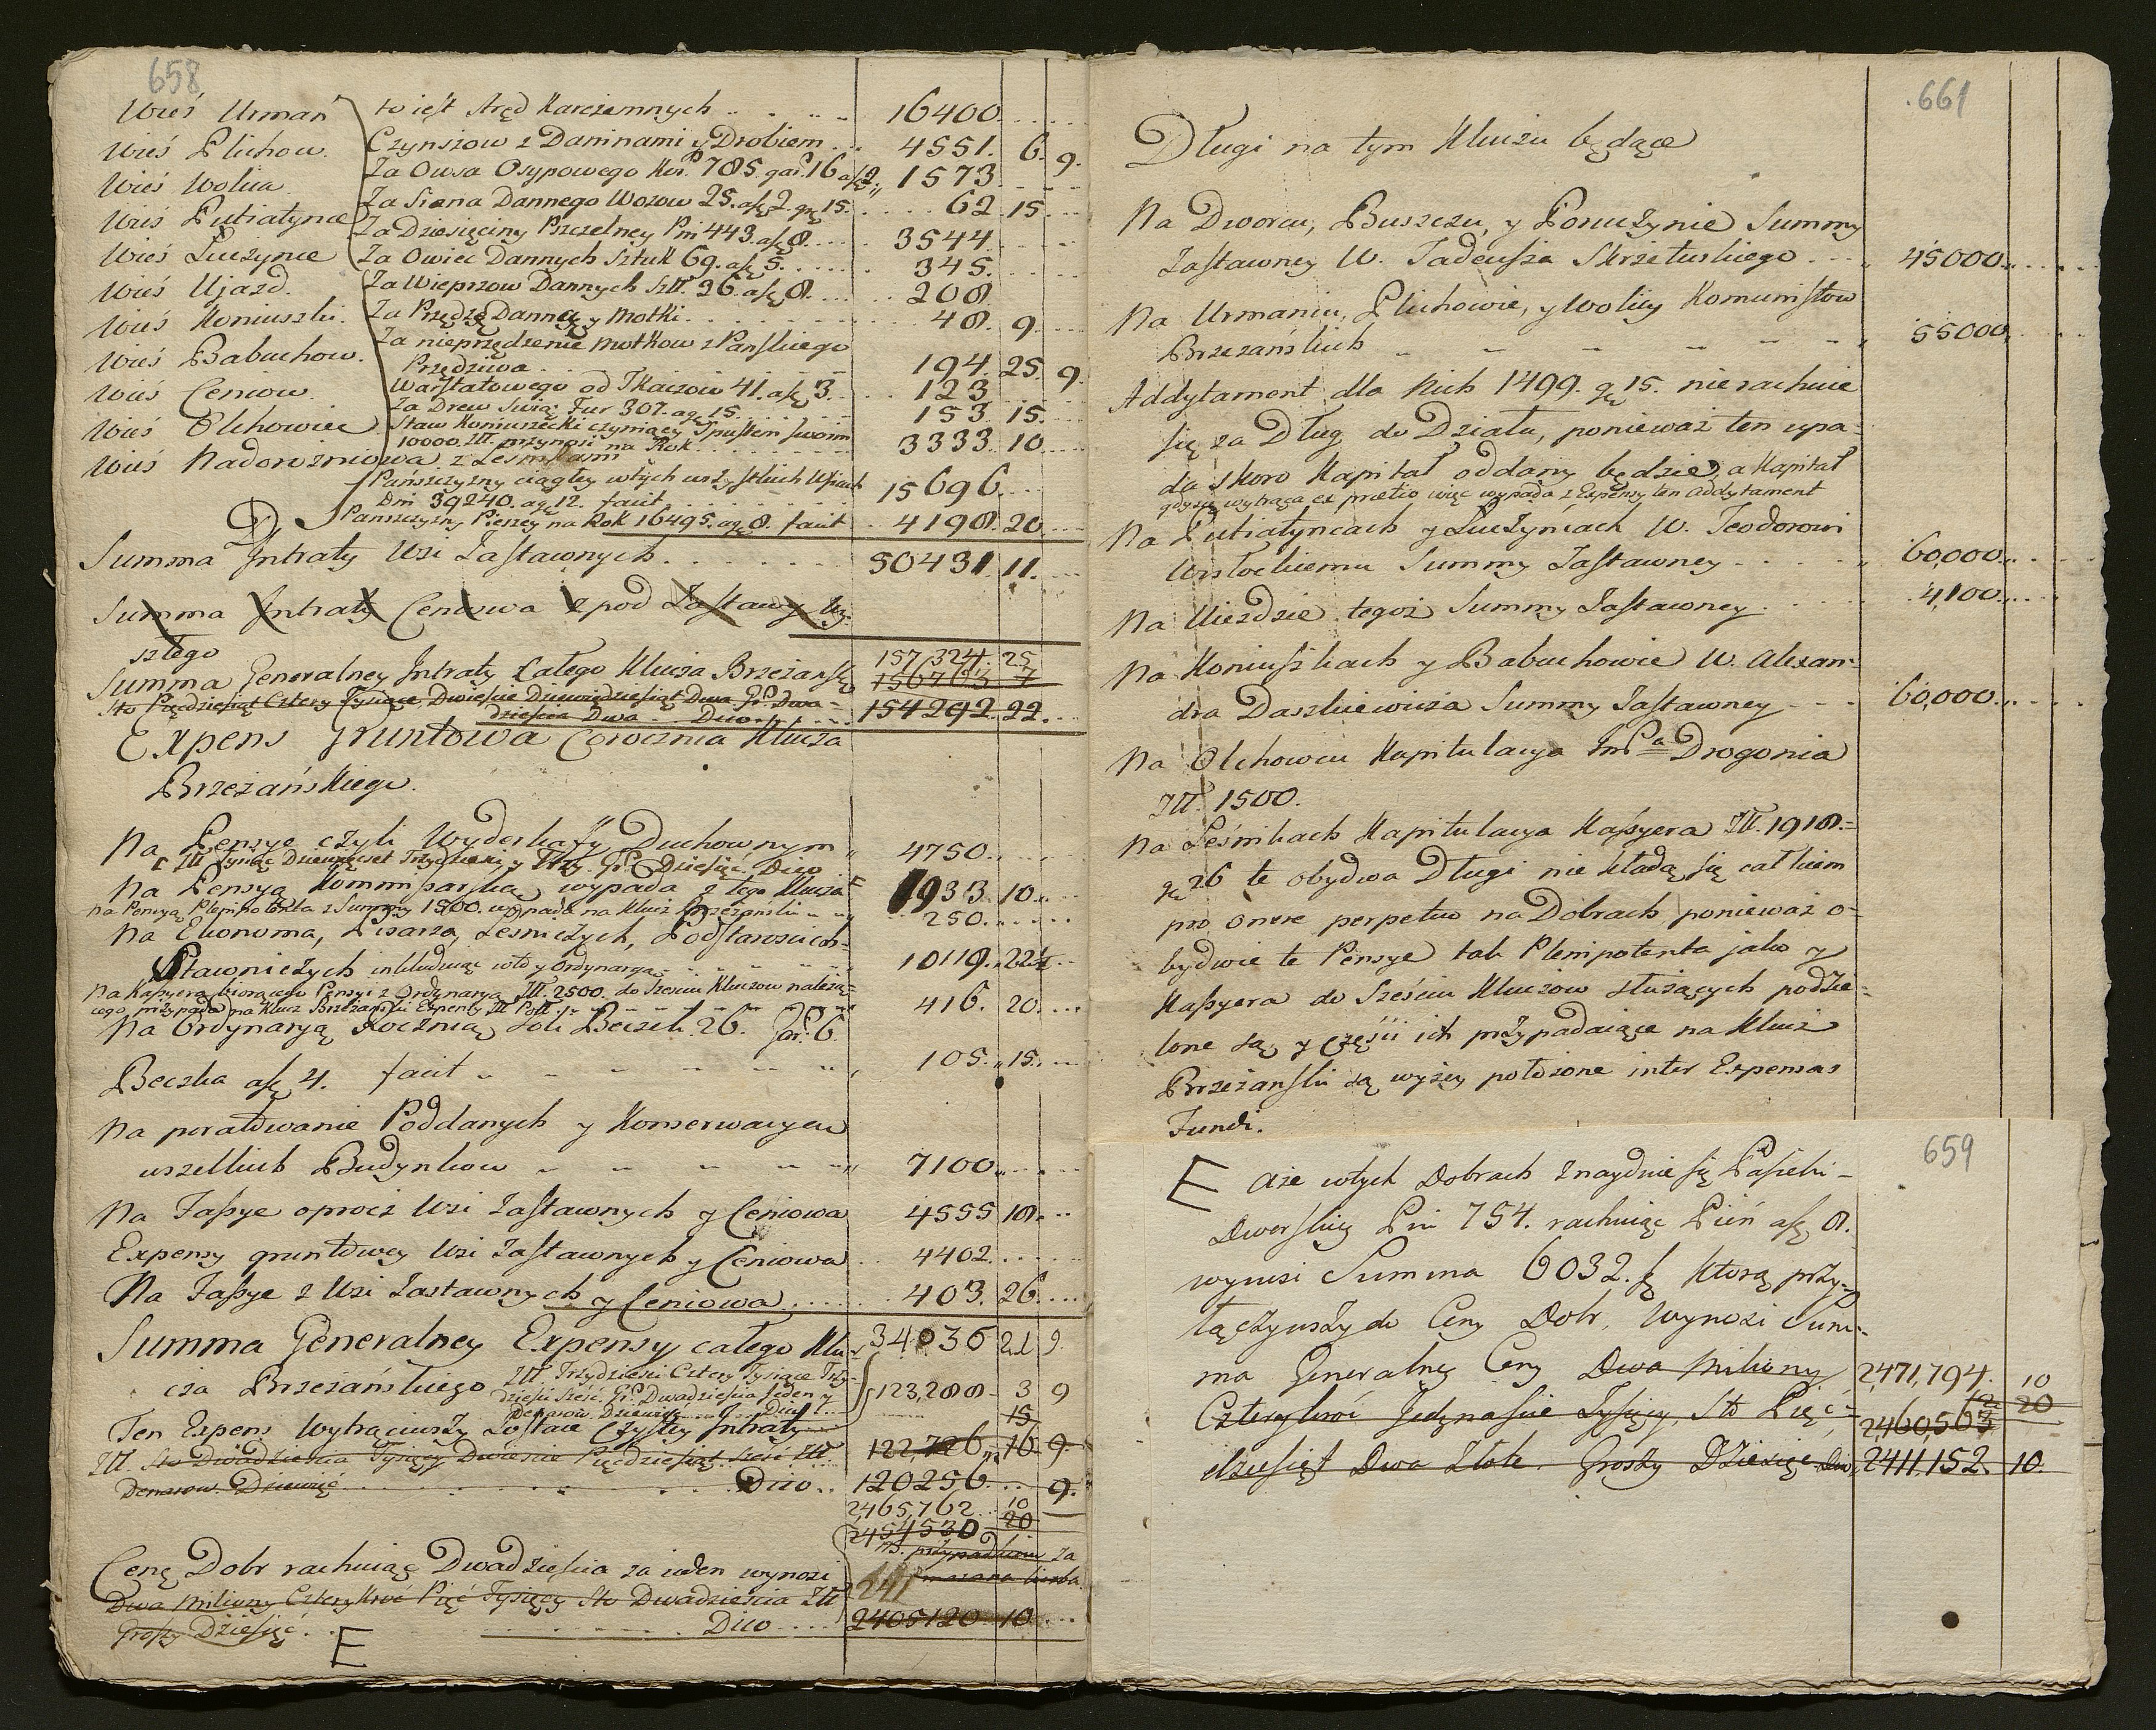 658
Wieś Urmań to iest Aręd Karczemnych 16400
Wieś Plichow Czynszow z Daninami y Drobiem 4551. 6. 9.
Wieś Wolica Za Owsa Osypowego Kor. 785. gar. 16 a f 2. 1573
Za Siana Dannego Wozow 25. a f 2. gr 15. 62 15
Wieś Putiatynce Za Dziesięciny Pszczelney Pni 443. a f 8. 3544
Wieś Łuczynce Za Owiec Dannych Sztuk 69. a f 5. 345
Wieś Ujazd Za Wieprzow Dannych Szt. 26. a f 8. 208
Wieś Koniuszki Za Przędzę Danną y Motki 48. 9
Wieś Babuchow Za nieprzędzenie Motkow z Pańskiego
Przędziwa 194. 25. 9
Wieś Ceniow Warstatowego od Tkaczow 41. a f 3. 123
Za Drew Fur 307. a g 15. 153 15
Wieś Olchowiec Staw Koniuszecki czyniący Spustem swoim
10000. Zlt. przynosi na Rok 3333 10
Wieś Nadorożniowa z Leśnikami
Pańszczyzny ciągłey w tych wszystkich Wsiach
Dni 39240. a g 12. facit 15696
D Pańszczyzny Pieszey na Rok 16495. a g 8. facit 4198. 20
Summa Jntraty Wsi Zastawnych 50431 11.
Summa Jntraty Ceniowa z pod Zastawy Wy-
szłego
157,324. 25
Summa Generalney Jntraty Całego Klucza Brzeżańskgo 156763 7
Sto Pięćdziesiąt Cztery Tysiące Dwieście Dziewiędziesiąt Dwa Gr. Dwa-
dzieścia Dwa Dico 154292. 22.
Expens Gruntowa Coroczna Klucza
Brzeżańskiego.
Na Pensye czyli Wyderkaffy Duchownym 4750
Zlt Tysiąc Dziewięćset Trzydzieści y Trzy. Gr. Dziesięć Dico
Na Pensyą Kommissarską wypada z tego Klucza 1933 10
Na Pensyą Plenipotenta z Summy 1500. wypada na Klucz Brzeżański 250
Na Ekonoma, Pisarza, Leśniczych, Podstarościch
Stawniczych inkluduiąc w to y Ordynaryą 10119. 22½
Na Kassyera biorącego Pensyi z Ordynaryą Zlt. 2500. do Sześciu Kluczow należą-
cego przypada na Klucz Brzeżański Expensy Zlt Poll. 416. 20
Na Ordynaryą Roczną Soli Beczek 26. Gar. 6.
Beczka a f 4. facit 105. 15
Na poratowanie Poddanych y Konserwacyew
wszelkich Budynkow 7100
Na Taxye oprocz Wsi Zastawnych y Ceniowa 4555 18
Expensy gruntowey Wsi Zastawnych y Ceniowa 4402
Na Taxye z Wsi Zastawnych y Ceniowa 403. 26
Summa Generalney Expensy całego Klu- 34036 21 9
cza Brzeżańskiego Zlt. Trzydzieści Cztery Tysiące Trzy-
dzieści Sześć. Gr. Dwadzieścia Jeden y
Denarow Dziewięć Dico 123,288 3 9
15
Ten Expens wytrąciwszy zostaie Czystey Jntraty 122,726 16 9
Zlt Sto Dwadzieścia Tysięcy Dwieście Pięćdziesiąt Sześć Zlt
Denarow Dziewięć Dico 120256 9.
2,465,762 10
2454530 20
NB. przypadkiem za
mazana liczba
Cenę Dobr rachuiąc Dwadzieścia za ieden wynosi 241
Dwa Miliony Czterykroć Pięć Tysięcy Sto Dwadzieścia Zlt
Groszy Dziesięć Dico 2405120 10
E
661
Długi na tym Kluczu będące
Na Dworcu, Buszczu, y Poruczynie Summy
Zastawney W. Tadeusza Skrzetuskiego 45000
Na Urmaniu, Plichowie, y Wolicy Komunistow
Brzeżańskich 55000
Addytament dla Nich 1499. gr 15. nie rachuie
się za Dług do Działu, ponieważ ten upa-
da skoro Kapitał oddany będzie, a Kapitał
gdy się wytrąca ex praetio więc wypada z Expensy ten Addytament
Na Putiatyncach y Łuczyncach W. Teodorowi
Wisłockiemu Summy Zastawney 60,000
Na Uieździe tegoż Summy Zastawney 4,100
Na Koniuszkach y Babuchowie W. Alexan-
dra Daszkiewicza Summy Zastawney 60,000
Na Olchowcu Kapitulacya ImPa Drogonia
Zlt. 1500.
Na Leśnikach Kapitulacya Kassyera Zlt. 1918.
gr 26 te obydwa Długi nie kładą się całkiem
pro onere perpetuo na Dobrach, ponieważ o-
bydwie te Pensye tak Plenipotenta jako y
Kassyera do Sześciu Kluczow służących podzie-
lone są, y części ich przypadaiące na Klucz
Brzeżański są wyżey położone inter Expensas
Fundi.
659
E aże w tych Dobrach znayduie się Pasieki
Dworskiey Pni 754. rachuiąc Pień a f 8.
wynosi Summa 6032. f którą przy-
łączywszy do Ceny Dobr, wynosi Sum-
ma Generalney Ceny Dwa Miliony 2,471,794. 10
Czterykroć Jedynaście Tysięcy, Sto Pięć- 2,460,563 20
dziesiąt Dwa Złote. Groszy Dziesięć Dico 2411,152. 10.